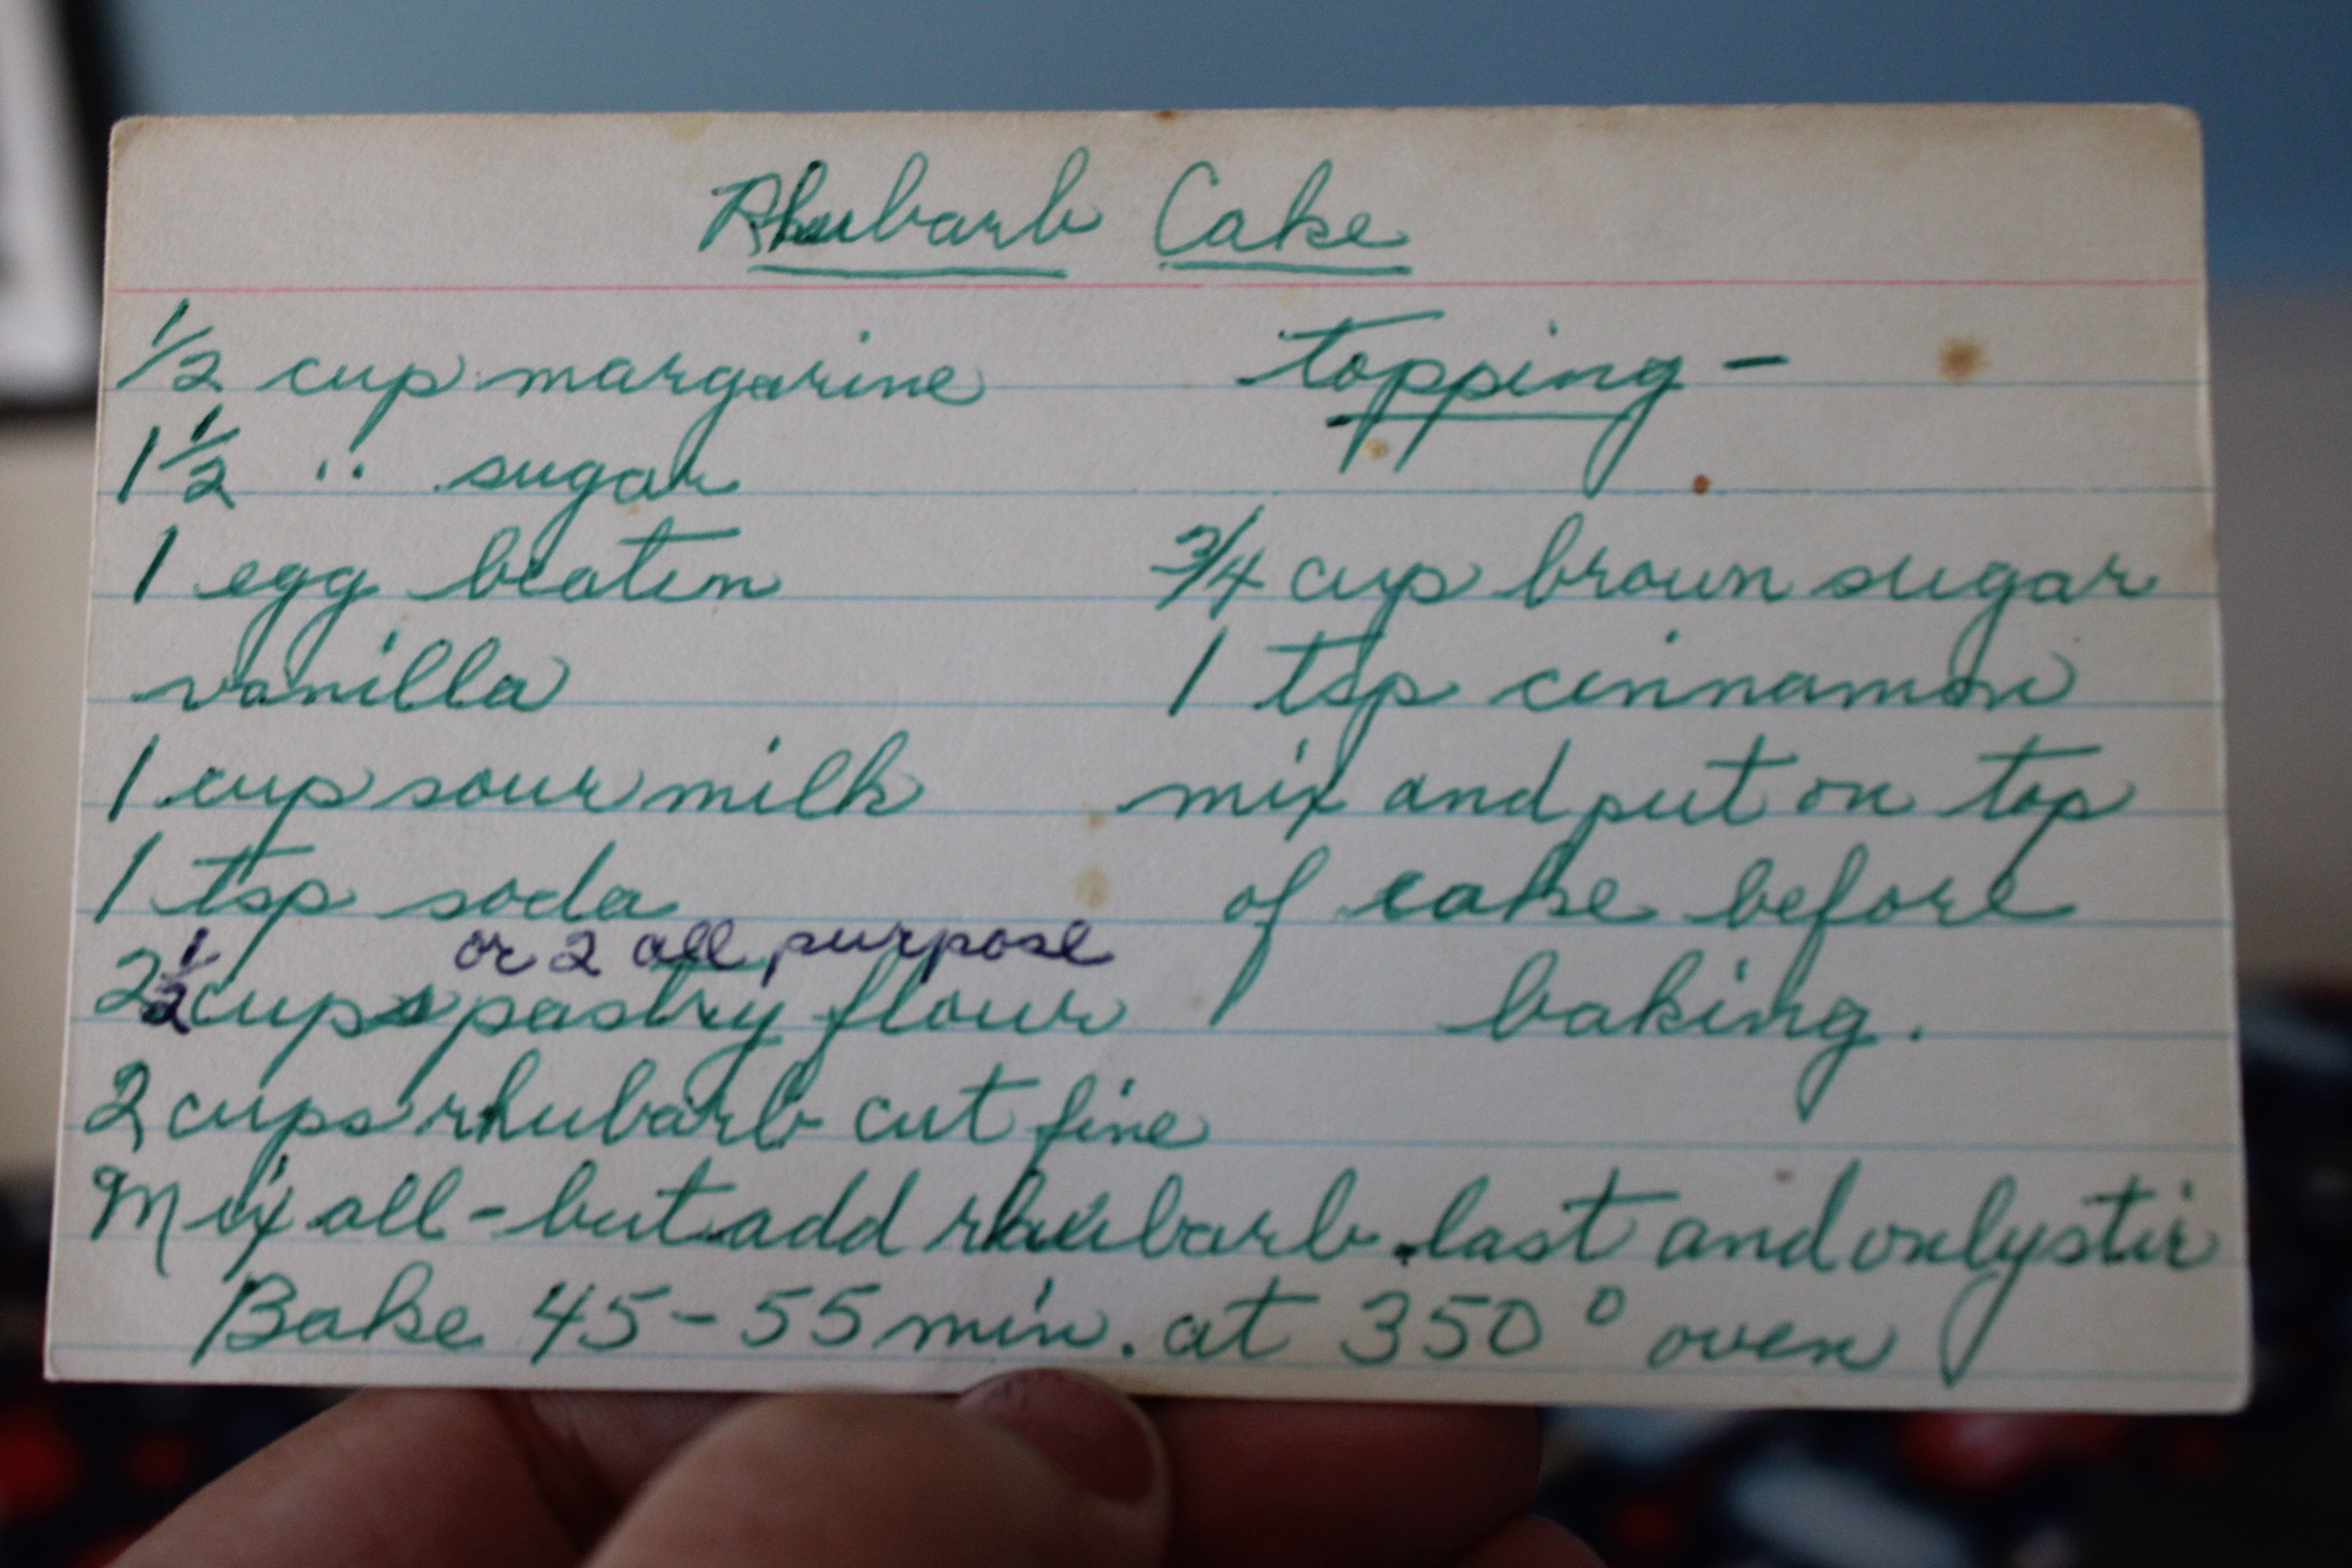 Rhubarb Cake
1/2 cup margarine
1 1/2 " sugar
1 egg beaten
vanilla
1 cup sour milk
1 tsp soda
or 2 all purpose
2 1/2 cups pastry flour
2 cups rhubarb cut fine
topping -
3/4 cup brown sugar
1 tsp cinnamon
mix and put on top
of cake before
baking.
Mix all - but add rhubarb last and only stir
Bake 45-55 min. at 350° oven